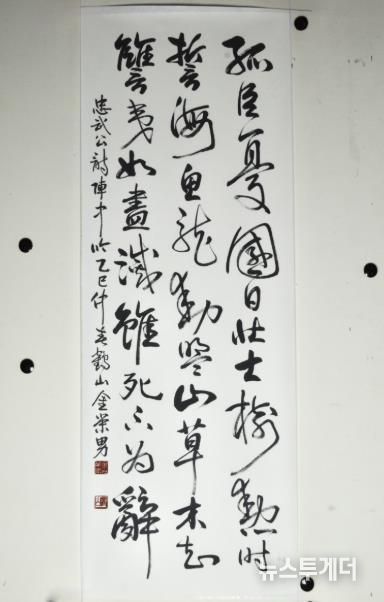 孤臣憂國日壯士樹勳時
誓海魚龍動盟山草木知
讐夷如盡滅雖死不為辭
忠武公詩陣中吟乙巳仲春鶴山金榮男
뉴스투게더